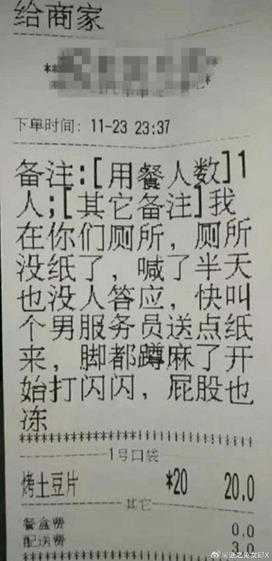 给商家
下单时间： 11-23 23:37
备注:[用餐人数]1
人;[其它备注]我
在你们厕所，厕所
没纸了，喊了半天
也没人答应，快叫
个男服务员送点纸
来，脚都蹲麻了开
始打闪闪，屁股也
冻
1号口袋
烤土豆片 *20 20.0
其它
餐盒费 0.0
配送费 3.0